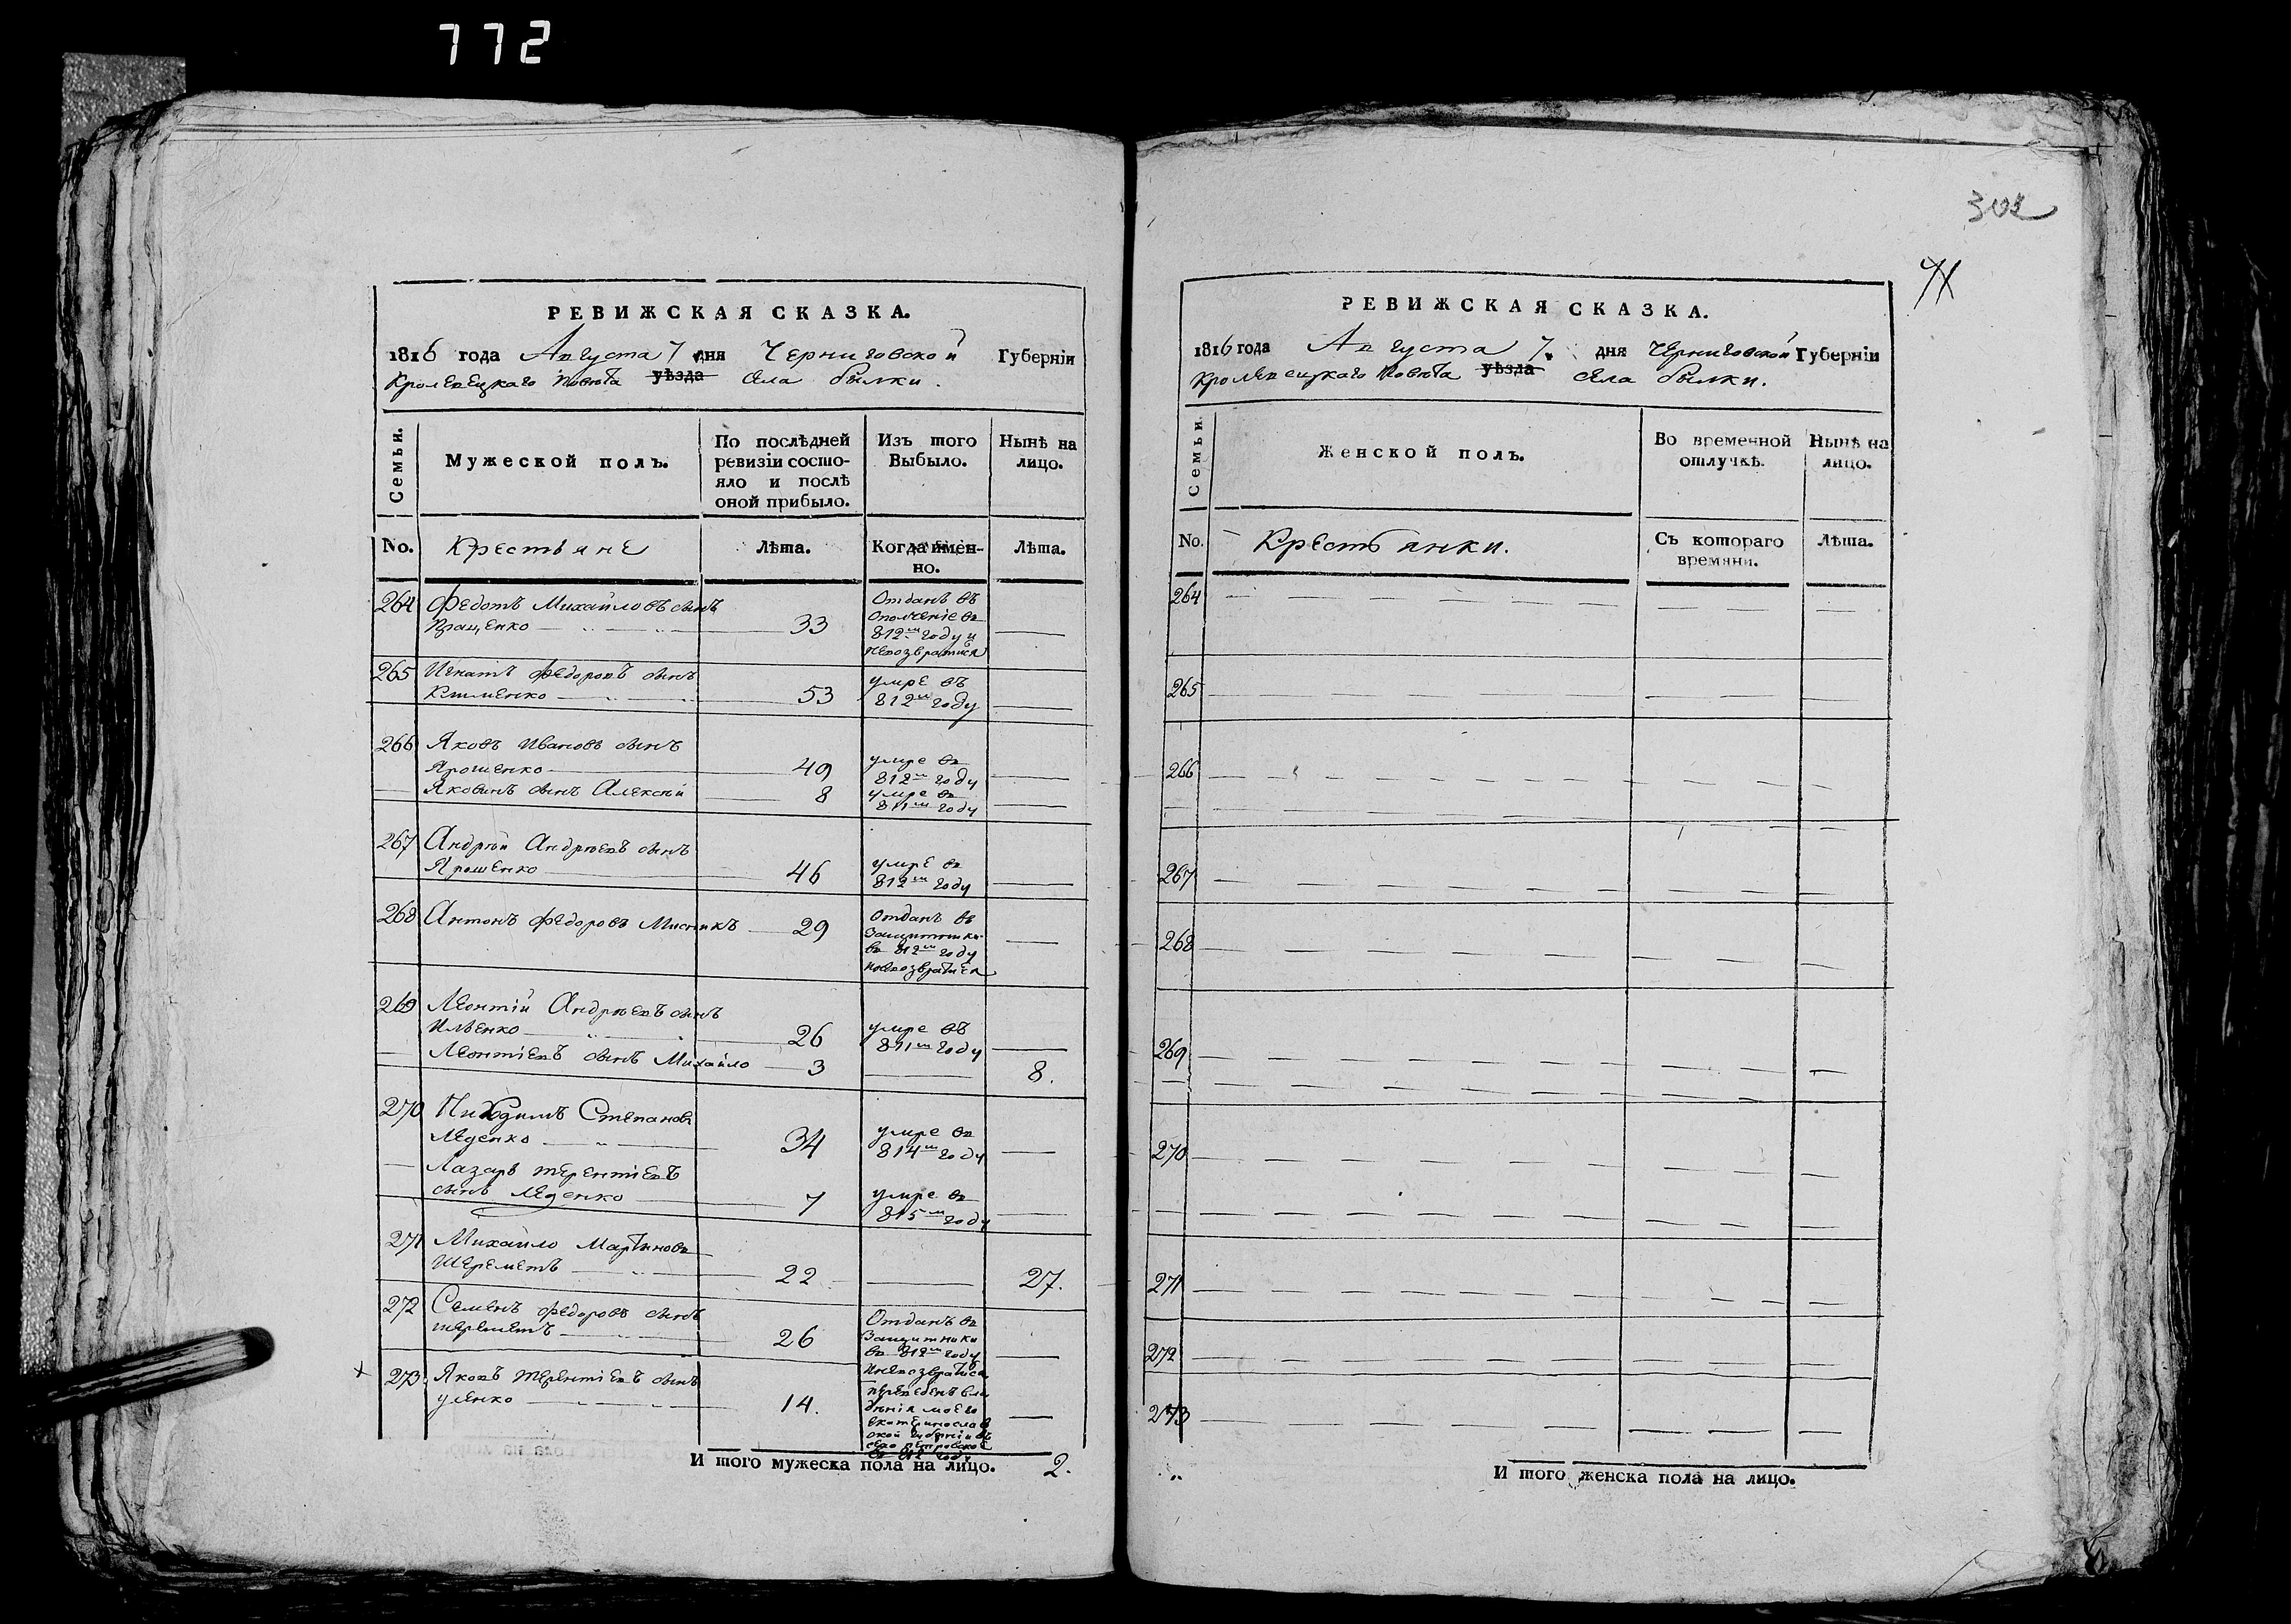 772
РЕВИЖСКАЯ СКАЗКА.
1816 года Августа 7 дня Черниговской Губерніи
Кролевецкаго Повѣта уѣзда Села быки.
Семьи.
Мужеской полъ.
По послѣдней
ревизіи состо-
яло и послѣ
оной прибыло.
Изъ того
Выбыло.
Нынѣ на
лицо.
No.
Крестьяне
Лѣта.
Когда имен-
но.
Лѣта.
264 Федотъ Михайловъ сынъ
33
Отданъ въ
Ополченіе въ
812м году и
невозвратился
265 Игнатъ Федоровъ сынъ
Клименко
53
умре въ
812м году
266 Яковъ Ивановъ сынъ
Ярошенко 49
умре въ
812м году
Яковинъ сынъ Алексѣй 8
умре въ
811м году
267 Андрѣй Андрѣевъ сынъ
Ярошенко 46
умре въ
812м году
268 Антонъ Федоровъ Мисникъ 29
Отданъ въ
Защитники
въ 812м году
и невозвратился
269 Леонтій Андрѣевъ сынъ
Ильенко 26
умре въ
811м году
Леонтіевъ сынъ Михайло 3 8.
270 Никодимъ Степановъ
34
умре въ
814м году
Лазарь терентіевъ
сынъ 7
умре въ
815м году
271 Михайло Мартиновъ
Шереметъ 22 27.
272 Семенъ Федоровъ сынъ
шереметъ 26
Отданъ въ
Защитники
въ 812м году
и невозвратился
273 Яковъ терентіевъ сынъ
14.
переведенъ вла
дѣнія моего
екатеринослав
ской губерніи въ
село петровское
въ году
И того мужеска пола на лицо. 2.
302
РЕВИЖСКАЯ СКАЗКА.
1816 года Августа 7. дня Черниговской Губерніи
Кролевецкаго Повѣта уѣзда Села быки.
Семьи.
Женской полъ.
Во временной
отлучкѣ.
Нынѣ на
лицо.
No.
Крестьянки.
Съ котораго
времяни.
Лѣта.
264
265
266
267
268
269
270
271
272
273
И того женска пола на лицо.